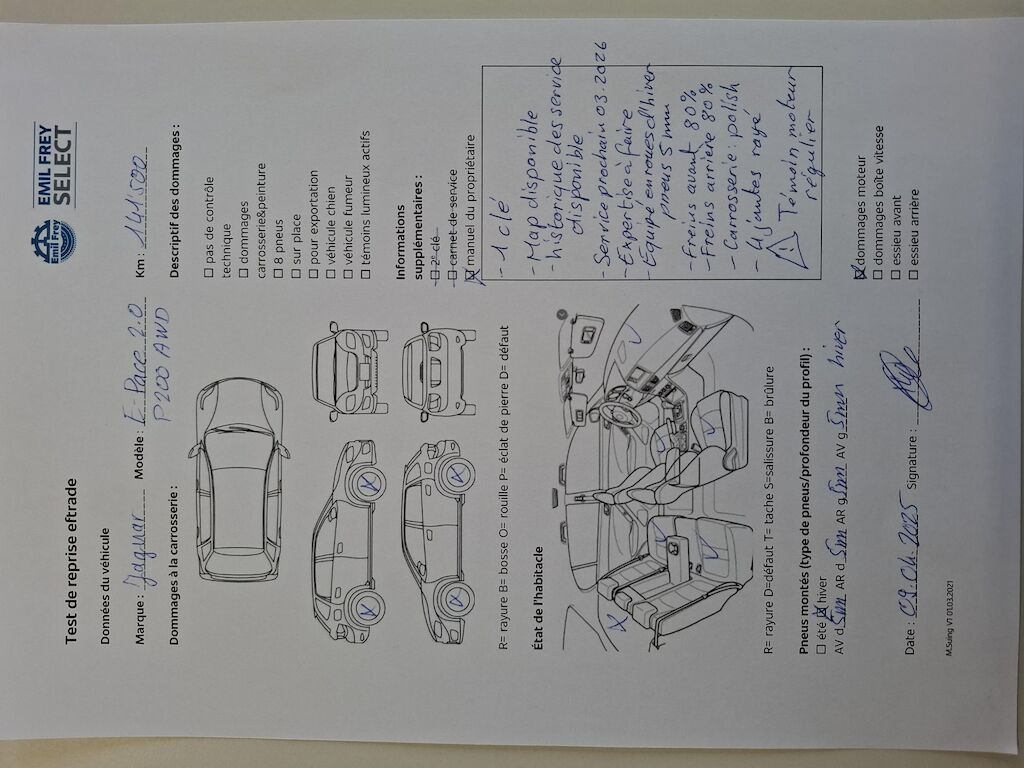 Test de reprise eftrade
Emil Frey
EMIL FREY
SELECT
Données du véhicule
Marque : Jaguar Modèle : E-Pace 2.0 Km : 141'500
P200 AWD
Dommages à la carrosserie :
Descriptif des dommages :
☐ pas de contrôle
technique
☐ dommages
carrosserie&peinture
☐ 8 pneus
☐ sur place
☐ pour exportation
☐ véhicule chien
☐ véhicule fumeur
☐ témoins lumineux actifs
Informations
supplémentaires :
☐ 2e clé
☐ carnet de service
☒ manuel du propriétaire
R= rayure B= bosse O= rouille P= éclat de pierre D= défaut
- 1 clé
- Map disponible
- historique des service
disponible
- Service prochain 03.2026
- Expertise à faire
- Equipé en roues d'hiver
pneus 5 mm
- Freins avant 80%
- Freins arrière 80%
- Carrosserie : polish
- 4 jantes rayé
⚠ Témoin moteur
régulier
État de l'habitacle
R= rayure D=défaut T= tache S=salissure B= brûlure
Pneus montés (type de pneus/profondeur du profil) :
☐ été ☒ hiver
AV d 5mm AR d 5mm AR g 5mm AV g 5mm hiver
☒ dommages moteur
☐ dommages boîte vitesse
☐ essieu avant
☐ essieu arrière
Date : 09.04.2025 Signature :
M.Suing V1 01.03.2021